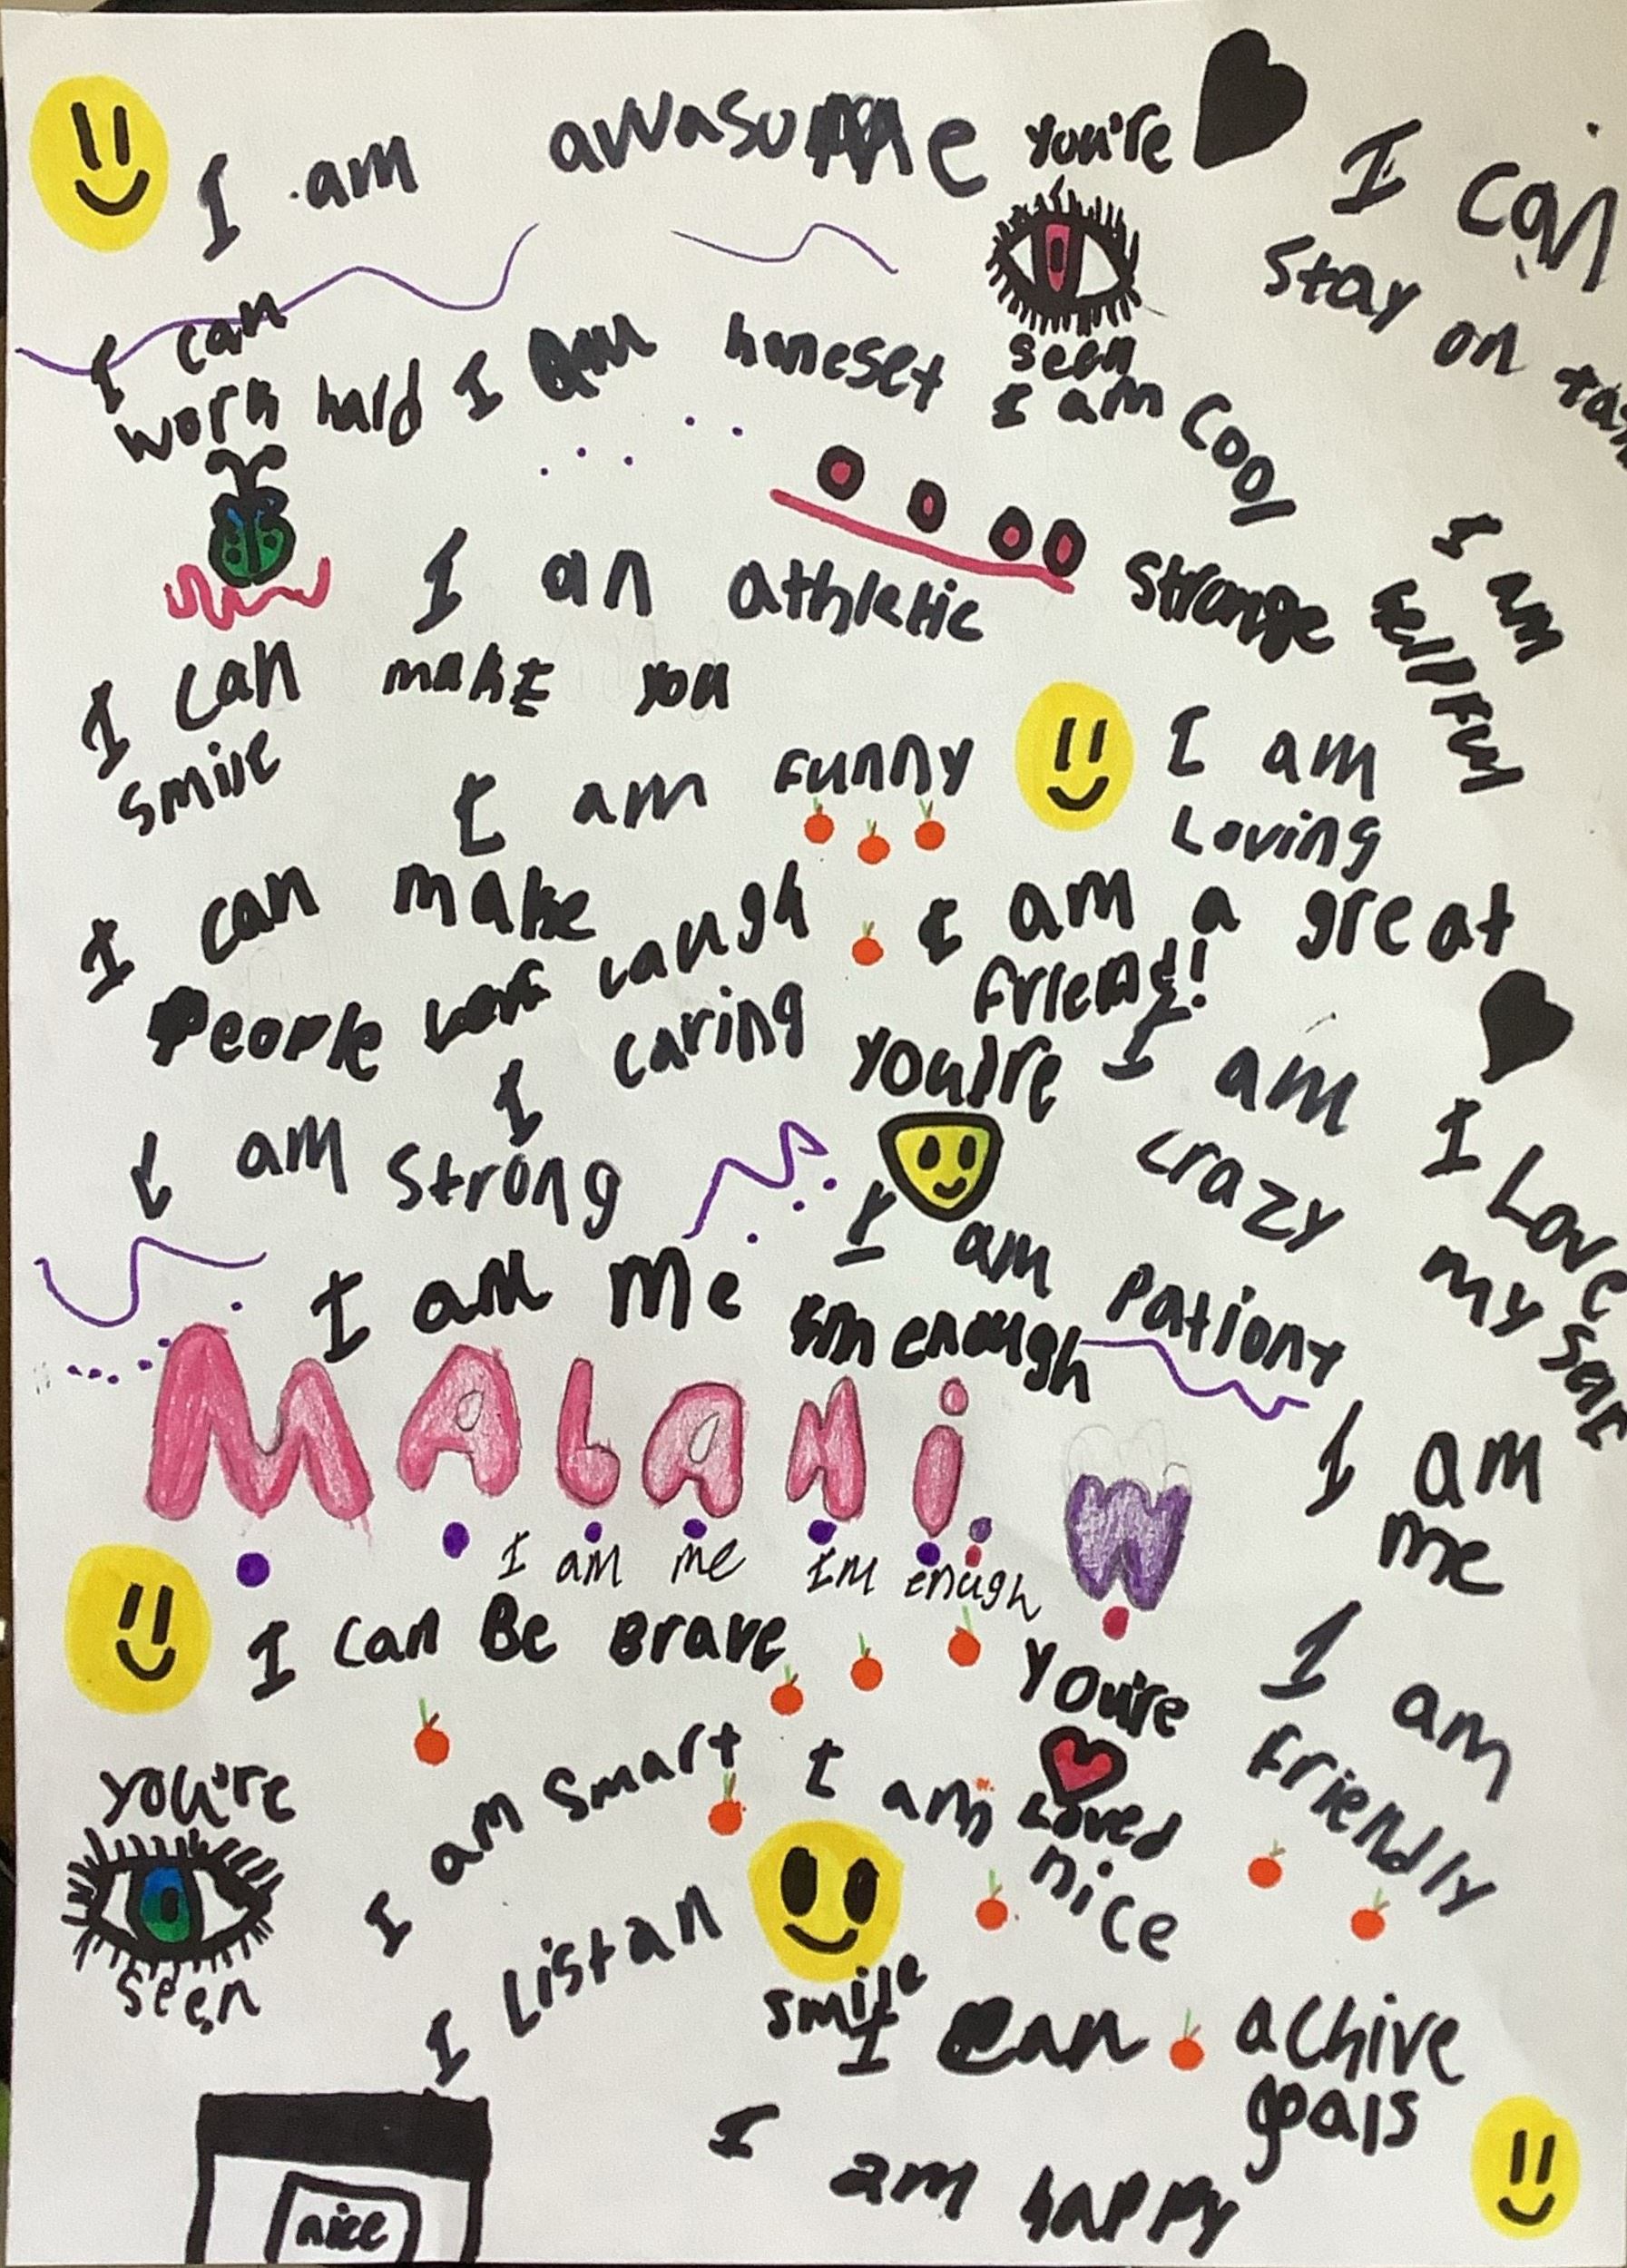 I am awasome
you're
seen
I can
stay on
I can
work hard
I am honeset
I am cool
I an athletic
strange
I am
helpful
I can make you
smile
I am funny
I am
Loving
I can make
people laugh
I am a great
friend!
I caring
you're
I am
crazy
I am strong
I Love
my self
I am me
I am pationt
Im enough
MALANi
W
I am
me
I am me Im enough
I can Be Brave
you're
Loved
I am
friendly
you're
seen
I am smart
I am
nice
I Listan
smile
I can achive
goals
I am happy
nice